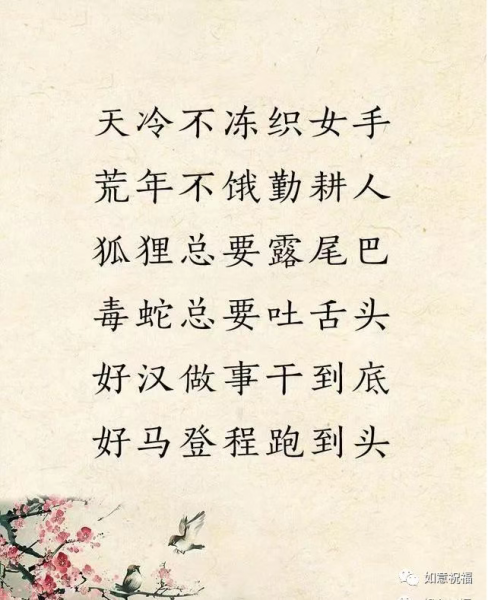 天冷不冻织女手
荒年不饿勤耕人
狐狸总要露尾巴
毒蛇总要吐舌头
好汉做事干到底
好马登程跑到头
如意祝福